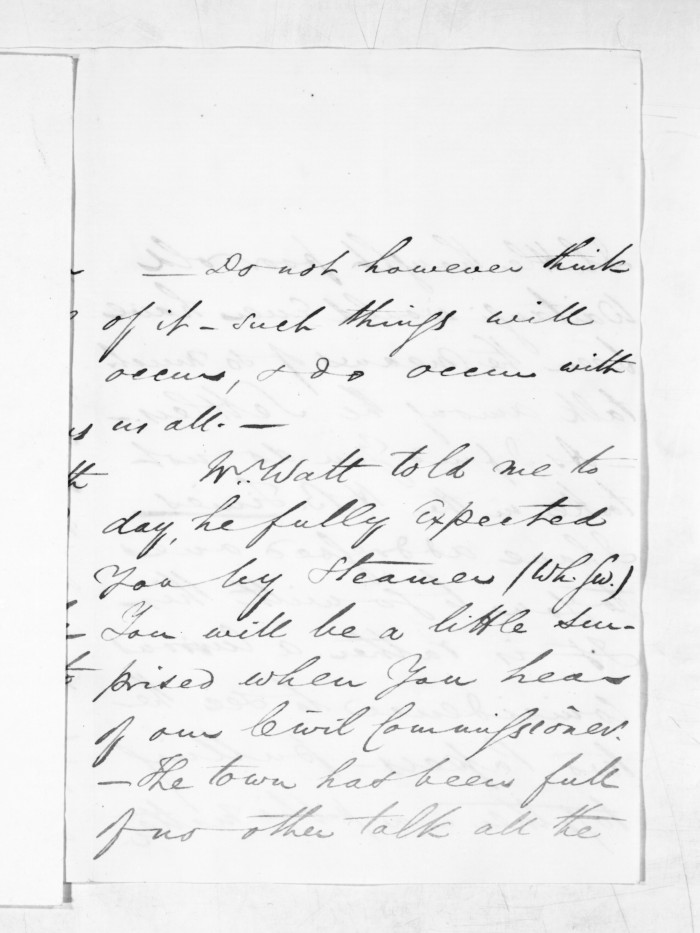 — Do not however think
of it – such things will
occur, & do occur with
us all. —
W. Watt told me to
day, he fully expected
You by Steamer
You will be a little sur-
prised when You hear
of our Civil Commissioner.
– The town has been full
of no other talk all the
us
th